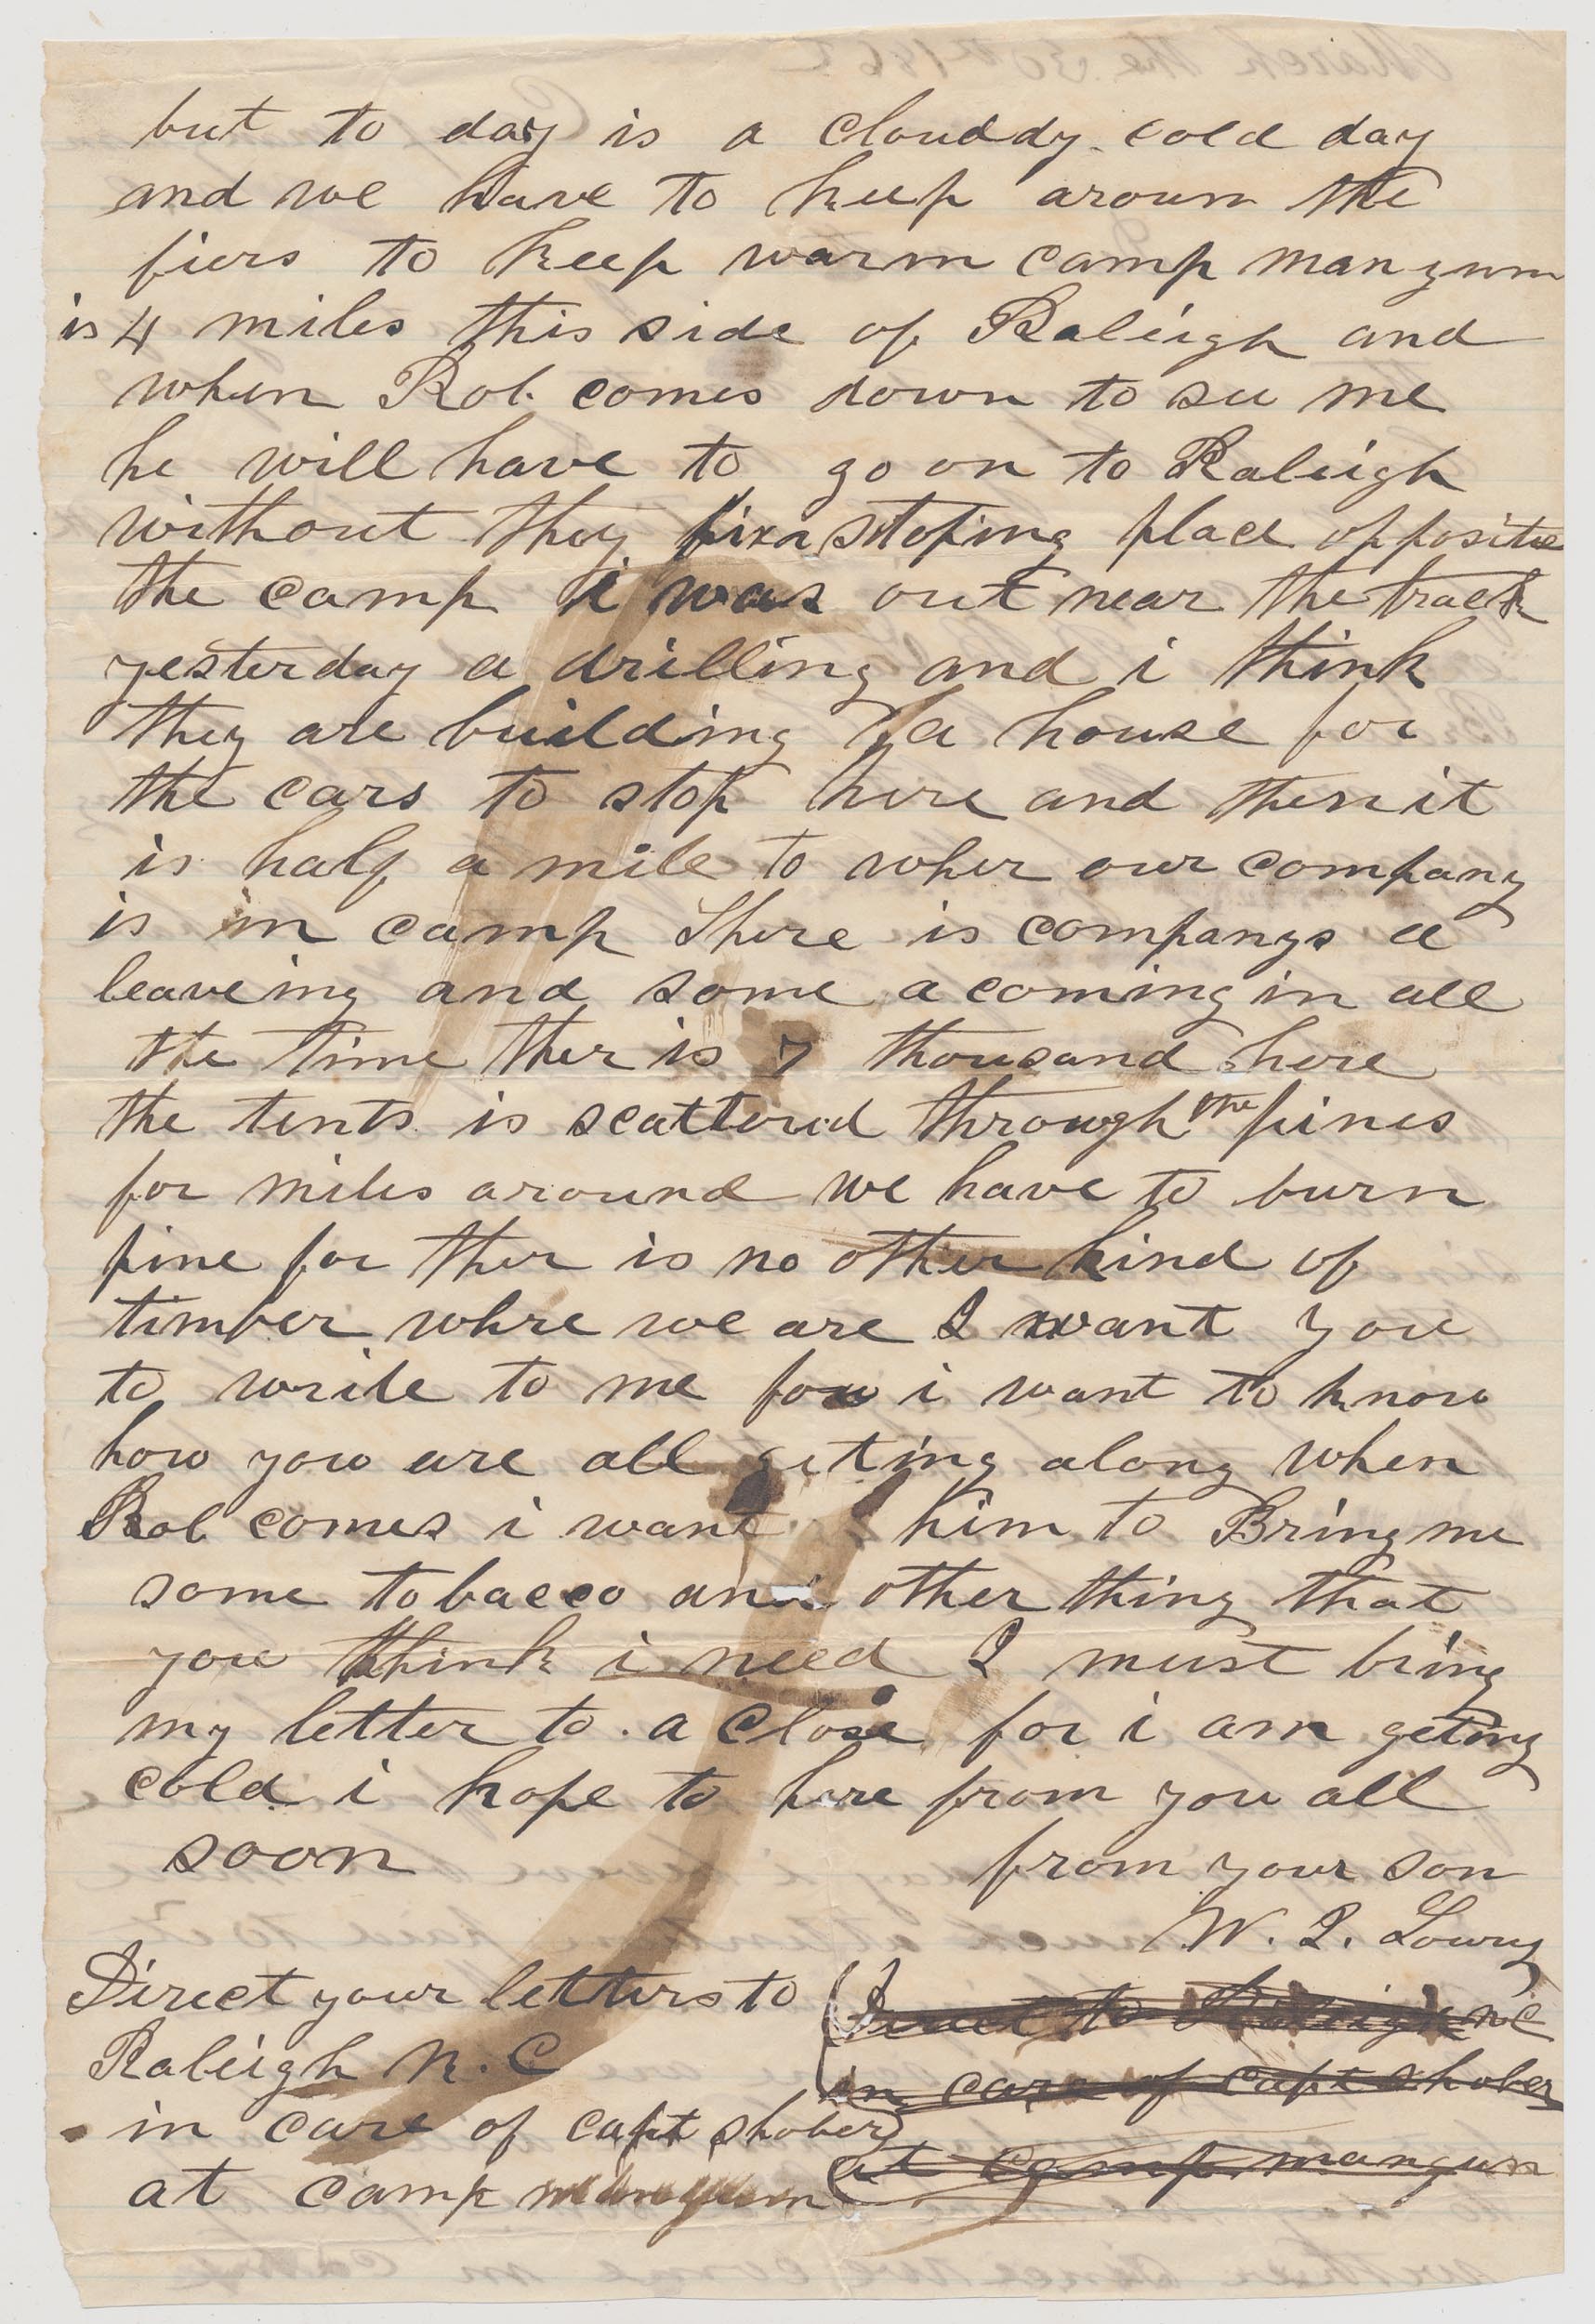 but to day is a clouddy cold day
and we have to keep aroun the
fiers to keep warm camp mangum
is 4 miles this side of Raleigh and
when Rob. comes down to see me
he will have to go on to Raleigh
without they fix a stoping place opposite
the camp i was out near the track
yesterday a drilling and i think
they are building a house for
the cars to stop here and then it
is half a mile to wher our company
is in camp There is companys a
leaveing and some a coming in all
the time ther is 7 thousand here
the tents is scattered through the pines
for miles around we have to burn
pine for ther is no other kind of
timber whre we are I want you
to write to me for i want to know
how you are all geting along when
Rob comes i want him to Bring me
some tobacco and other thing that
you think i need I must bring
my letter to a close for i am geting
cold i hope to here from you all
soon
from your son
W. L. Lowry
Direct your letters to
Raleigh N. C
in care of capt shober
at camp mangum
Direct to Raleigh nc
in care of capt shober
at camp mangum